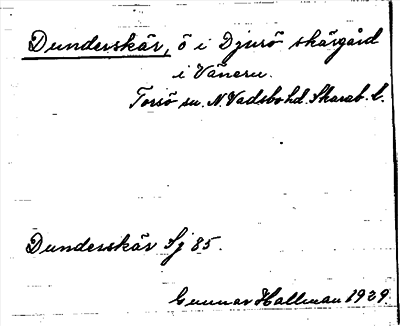 Dunderskär, ö i Djurö skärgård
i Vänern.
Torsö sn. N. Vadsbo hd. Skarab. l.
Dunderskär Sj 85.
Gunnar Hallman 1929.